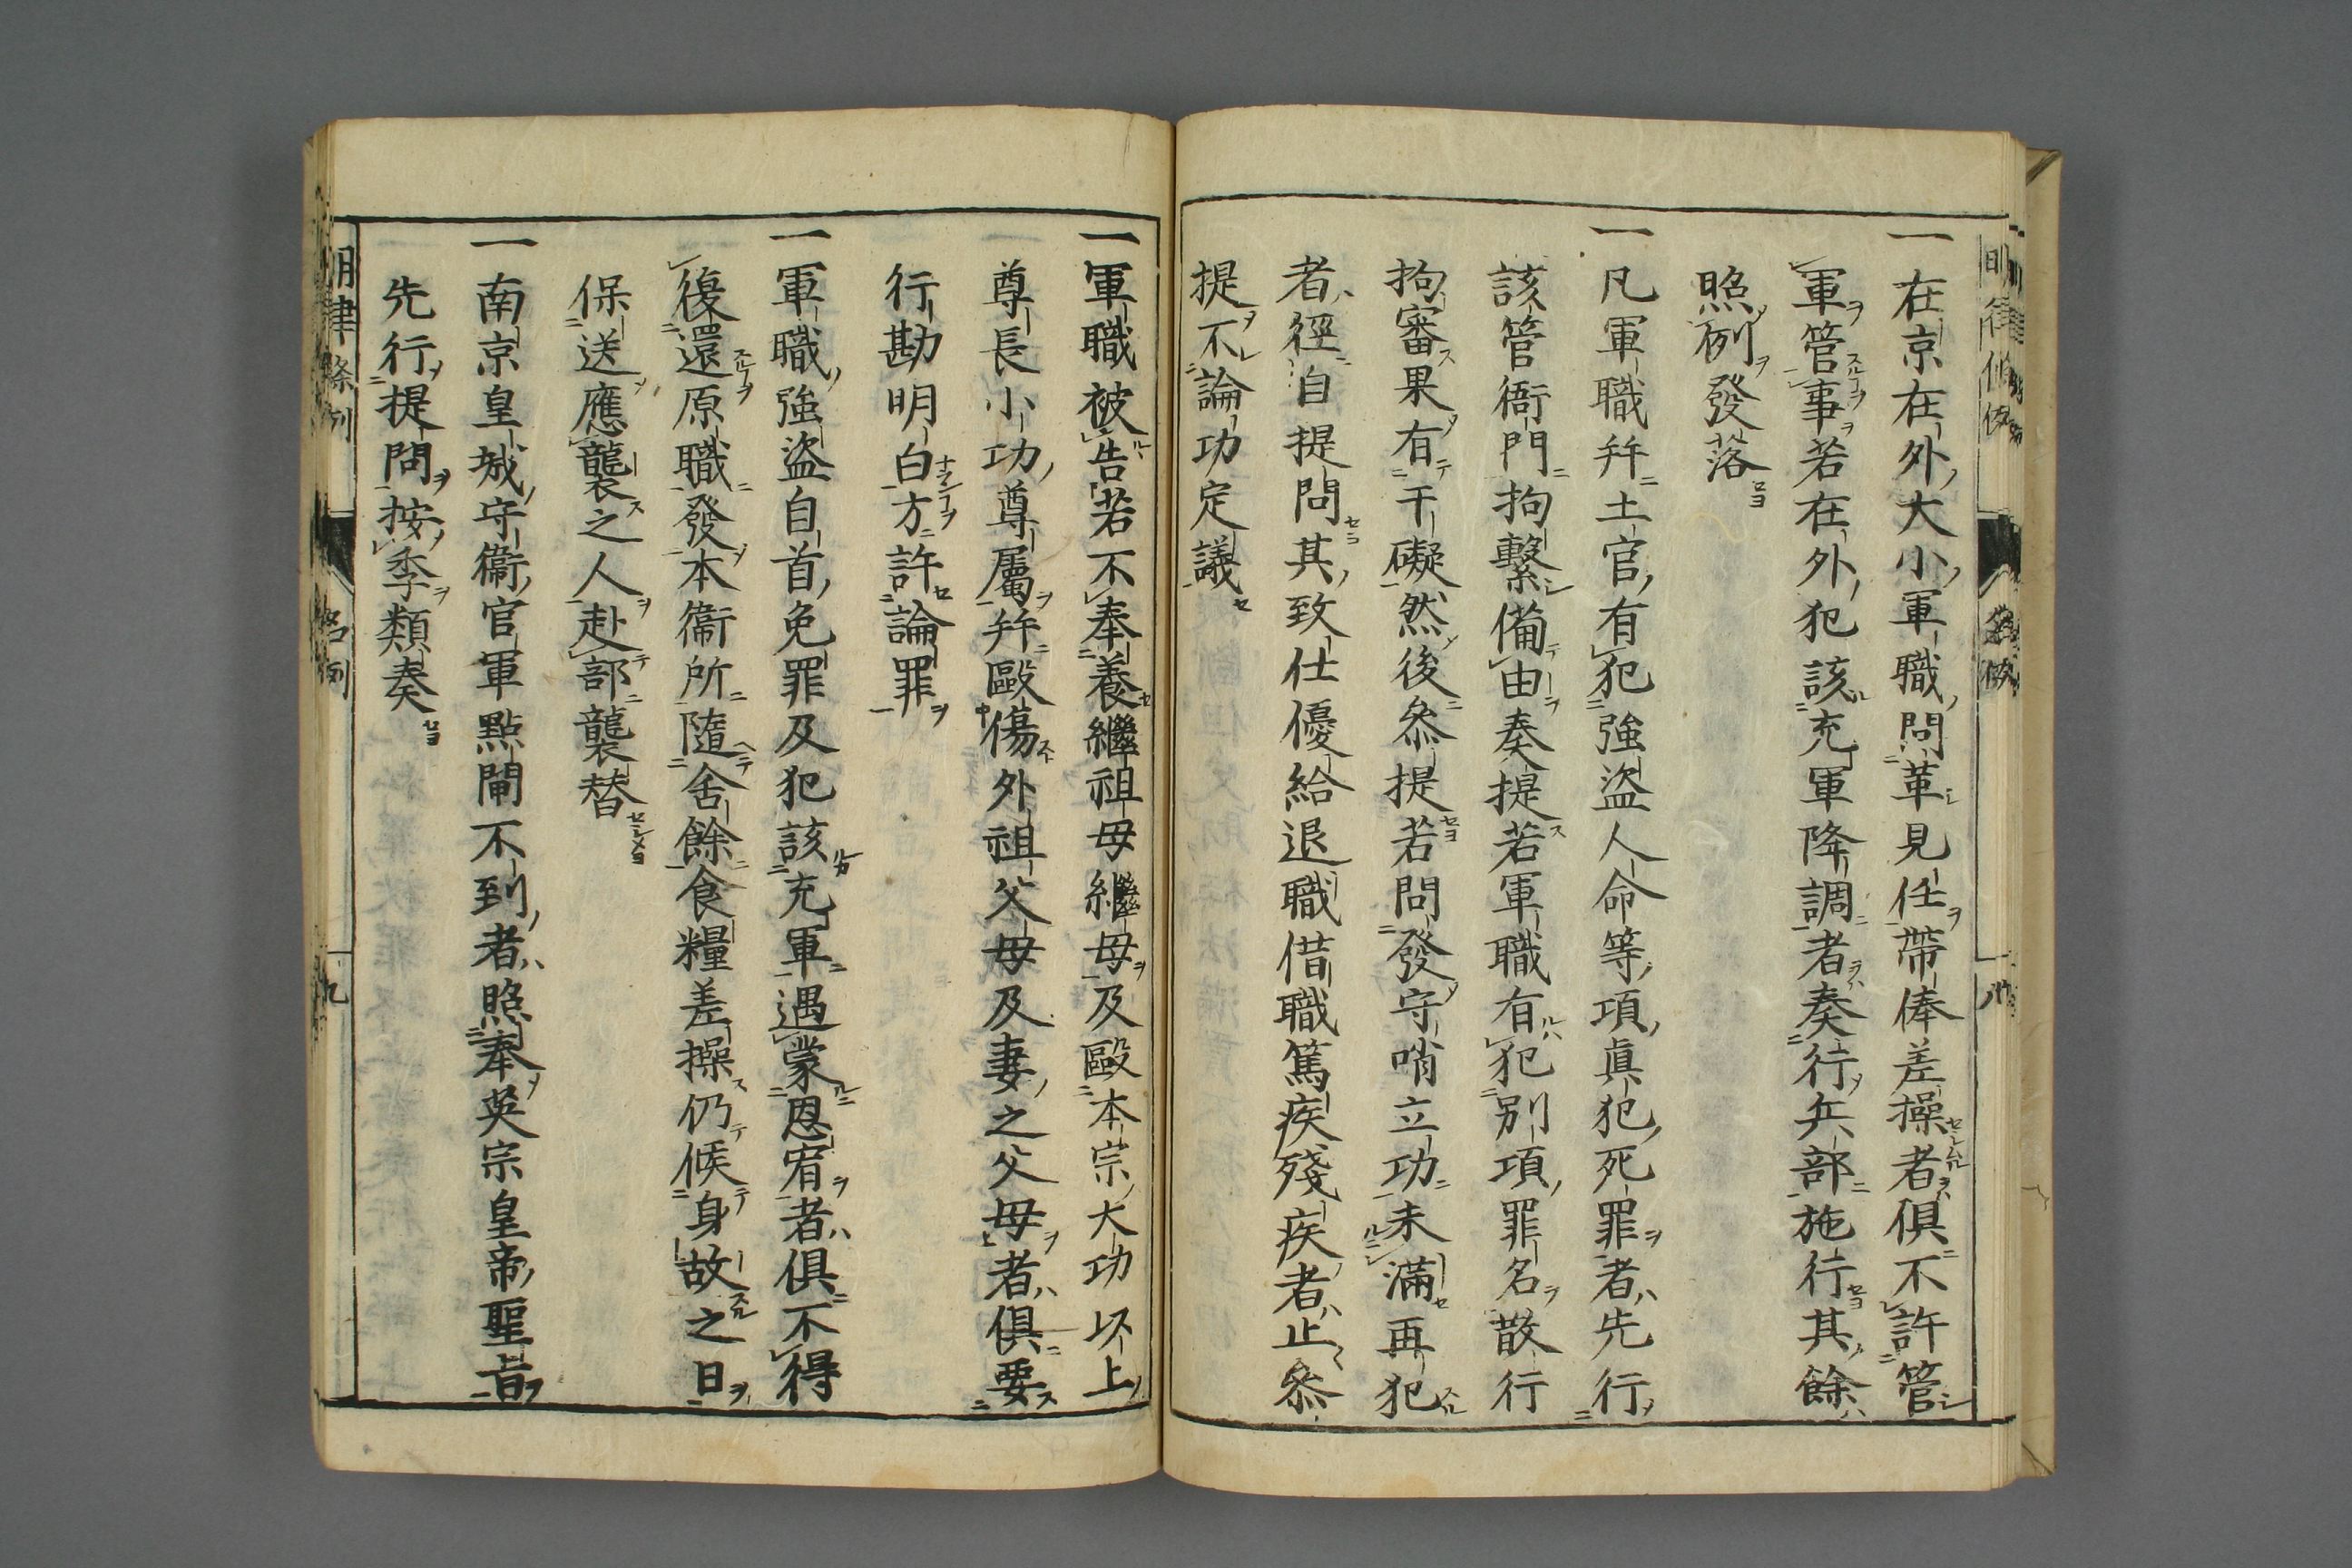 一在京在外大小軍職問革見任帶俸差操者俱不許管
軍管事若在外犯該充軍降調者奏行兵部施行其餘
照例發落
一凡軍職幷土官有犯強盜人命等項眞犯死罪者先行
該管衙門拘繫備由奏提若軍職有犯別項罪名散行
拘審果有干礙然後叅提若問發守哨立功未滿再犯
者徑自提問其致仕優給退職借職篤疾殘疾者止叅
提不論功定議
一軍職被告若不奉養繼祖母繼母及毆本宗大功以上
尊長小功尊屬幷毆傷外祖父母及妻之父母者俱要
行勘明白方許論罪
一軍職強盜自首免罪及犯該充軍遇蒙恩宥者俱不得
復還原職發本衞所隨舍餘食糧差操仍候身故之日
保送應襲之人赴部襲替
一南京皇城守衞官軍點閘不到者照奉英宗皇帝聖旨
先行提問按季類奏
明律條例 名例 九